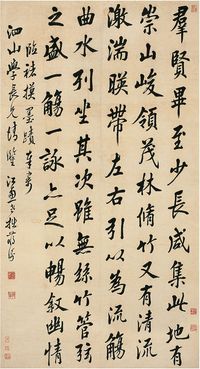 群賢畢至少長咸集此地有
崇山峻領茂林脩竹又有清流
激湍暎帶左右引以為流觴
曲水列坐其次雖無絲竹管弦
之盛一觴一詠亦足以暢敘幽情
臨禊摸墨蹟奉寄
泗山學長兄清鑒